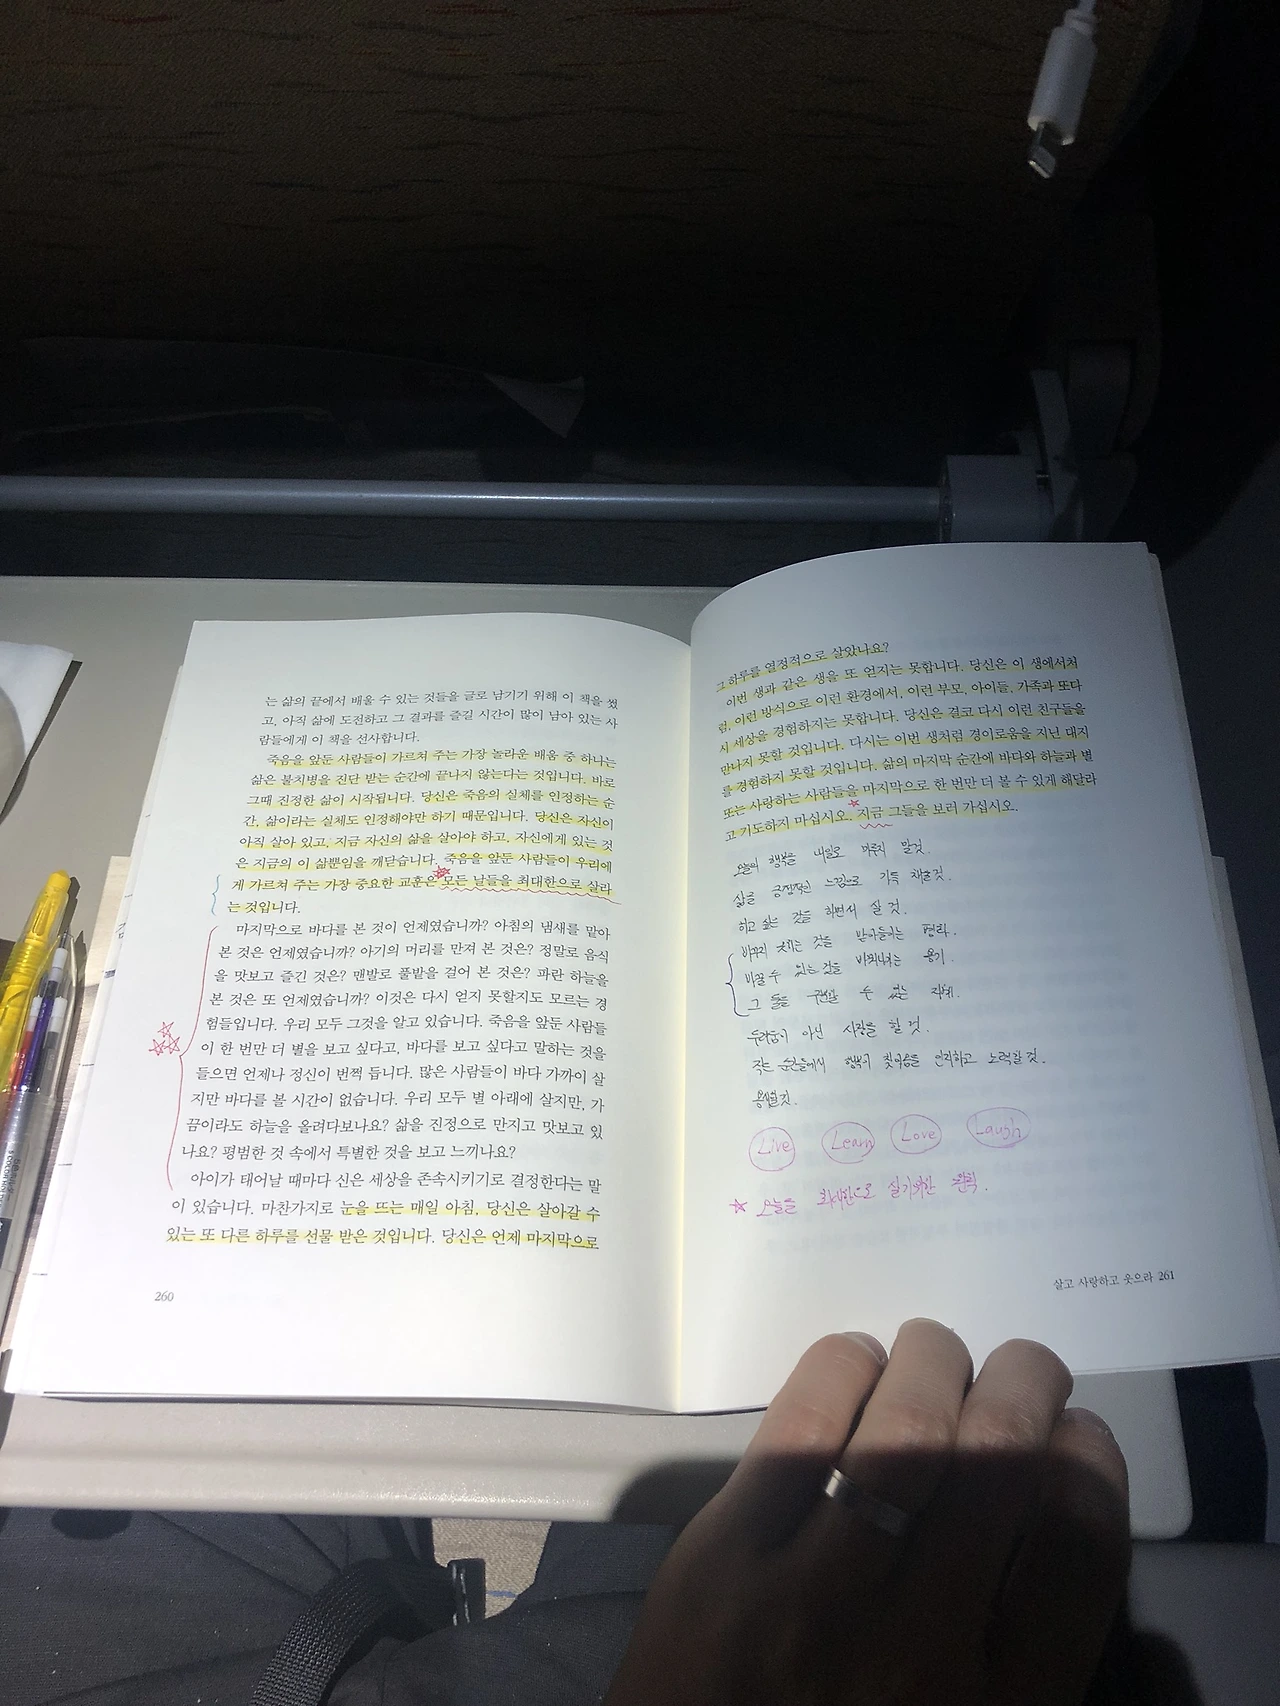 는 삶의 끝에서 배울 수 있는 것들을 글로 남기기 위해 이 책을 썼
고, 아직 삶에 도전하고 그 결과를 즐길 시간이 많이 남아 있는 사
람들에게 이 책을 선사합니다.
죽음을 앞둔 사람들이 가르쳐 주는 가장 놀라운 배움 중 하나는
삶은 불치병을 진단 받는 순간에 끝나지 않는다는 것입니다. 바로
그때 진정한 삶이 시작됩니다. 당신은 죽음의 실체를 인정하는 순
간, 삶이라는 실체도 인정해야만 하기 때문입니다. 당신은 자신이
아직 살아 있고, 지금 자신의 삶을 살아야 하고, 자신에게 있는 것
은 지금의 이 삶뿐임을 깨닫습니다. 죽음을 앞둔 사람들이 우리에
게 가르쳐 주는 가장 중요한 교훈은 모든 날들을 최대한으로 살라
는 것입니다.
마지막으로 바다를 본 것이 언제였습니까? 아침의 냄새를 맡아
본 것은 언제였습니까? 아기의 머리를 만져 본 것은? 정말로 음식
을 맛보고 즐긴 것은? 맨발로 풀밭을 걸어 본 것은? 파란 하늘을
본 것은 또 언제였습니까? 이것은 다시 얻지 못할지도 모르는 경
험들입니다. 우리 모두 그것을 알고 있습니다. 죽음을 앞둔 사람들
이 한 번만 더 별을 보고 싶다고, 바다를 보고 싶다고 말하는 것을
들으면 언제나 정신이 번쩍 듭니다. 많은 사람들이 바다 가까이 살
지만 바다를 볼 시간이 없습니다. 우리 모두 별 아래에 살지만, 가
끔이라도 하늘을 올려다보나요? 삶을 진정으로 만지고 맛보고 있
나요? 평범한 것 속에서 특별한 것을 보고 느끼나요?
아이가 태어날 때마다 신은 세상을 존속시키기로 결정한다는 말
이 있습니다. 마찬가지로 눈을 뜨는 매일 아침, 당신은 살아갈 수
있는 또 다른 하루를 선물 받은 것입니다. 당신은 언제 마지막으로
260
그 하루를 열정적으로 살았나요?
이번 생과 같은 생을 또 얻지는 못합니다. 당신은 이 생에서처
럼, 이런 방식으로 이런 환경에서, 이런 부모, 아이들, 가족과 또다
시 세상을 경험하지는 못합니다. 당신은 결코 다시 이런 친구들을
만나지 못할 것입니다. 다시는 이번 생처럼 경이로움을 지닌 대지
를 경험하지 못할 것입니다. 삶의 마지막 순간에 바다와 하늘과 별
또는 사랑하는 사람들을 마지막으로 한 번만 더 볼 수 있게 해달라
고 기도하지 마십시오. 지금 그들을 보러 가십시오.
오늘의 행복을 내일로 미루지 말것.
삶을 긍정적인 느낌으로 가득 채울것.
하고 싶은 것을 하면서 살 것.
바꾸지 못하는 것을 받아들이는 평화.
바꿀 수 있는 것을 바꿔나가는 용기.
그 둘을 구별할 수 있는 지혜.
두려움이 아닌 사랑을 할 것.
작은 순간들에서 행복이 찾아옴을 인지하고 노력할 것.
용서할것.
Live Learn Love Laugh
오늘을 최대한으로 살기위한 원칙.
살고 사랑하고 웃으라 261